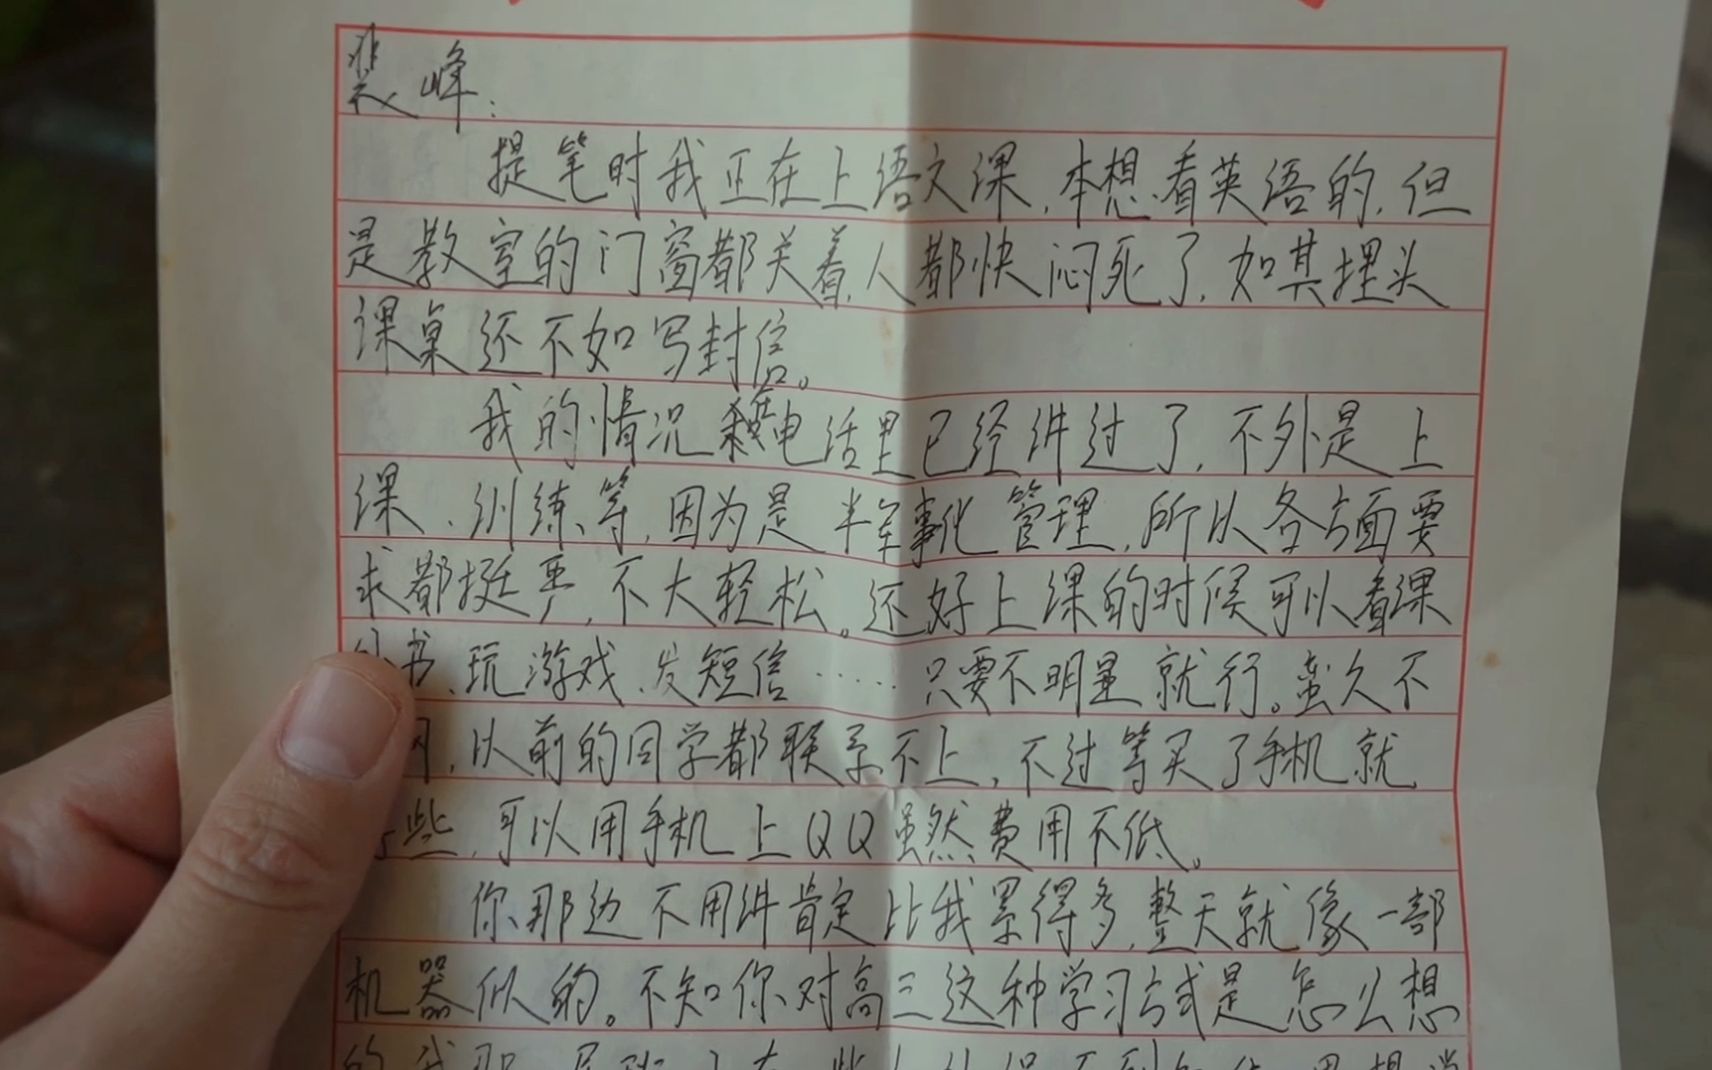 裴峰：
提笔时我正在上语文课，本想看英语的，但
是教室的门窗都关着，人都快闷死了，如其埋头
课桌还不如写封信。
我的情况电话里已经讲过了，不外是上
课、训练、等，因为是半军事化管理，所以各方面要
求都挺严，不大轻松。还好上课的时候可以看课
外书、玩游戏、发短信……只要不明显就行。蛮久不
网，以前的同学都联系不上，不过等买了手机就
些，可以用手机上QQ虽然费用不低。
你那边不用讲肯定比我累得多，整天就像一部
机器似的。不知你对高三这种学习方式是怎么想
的